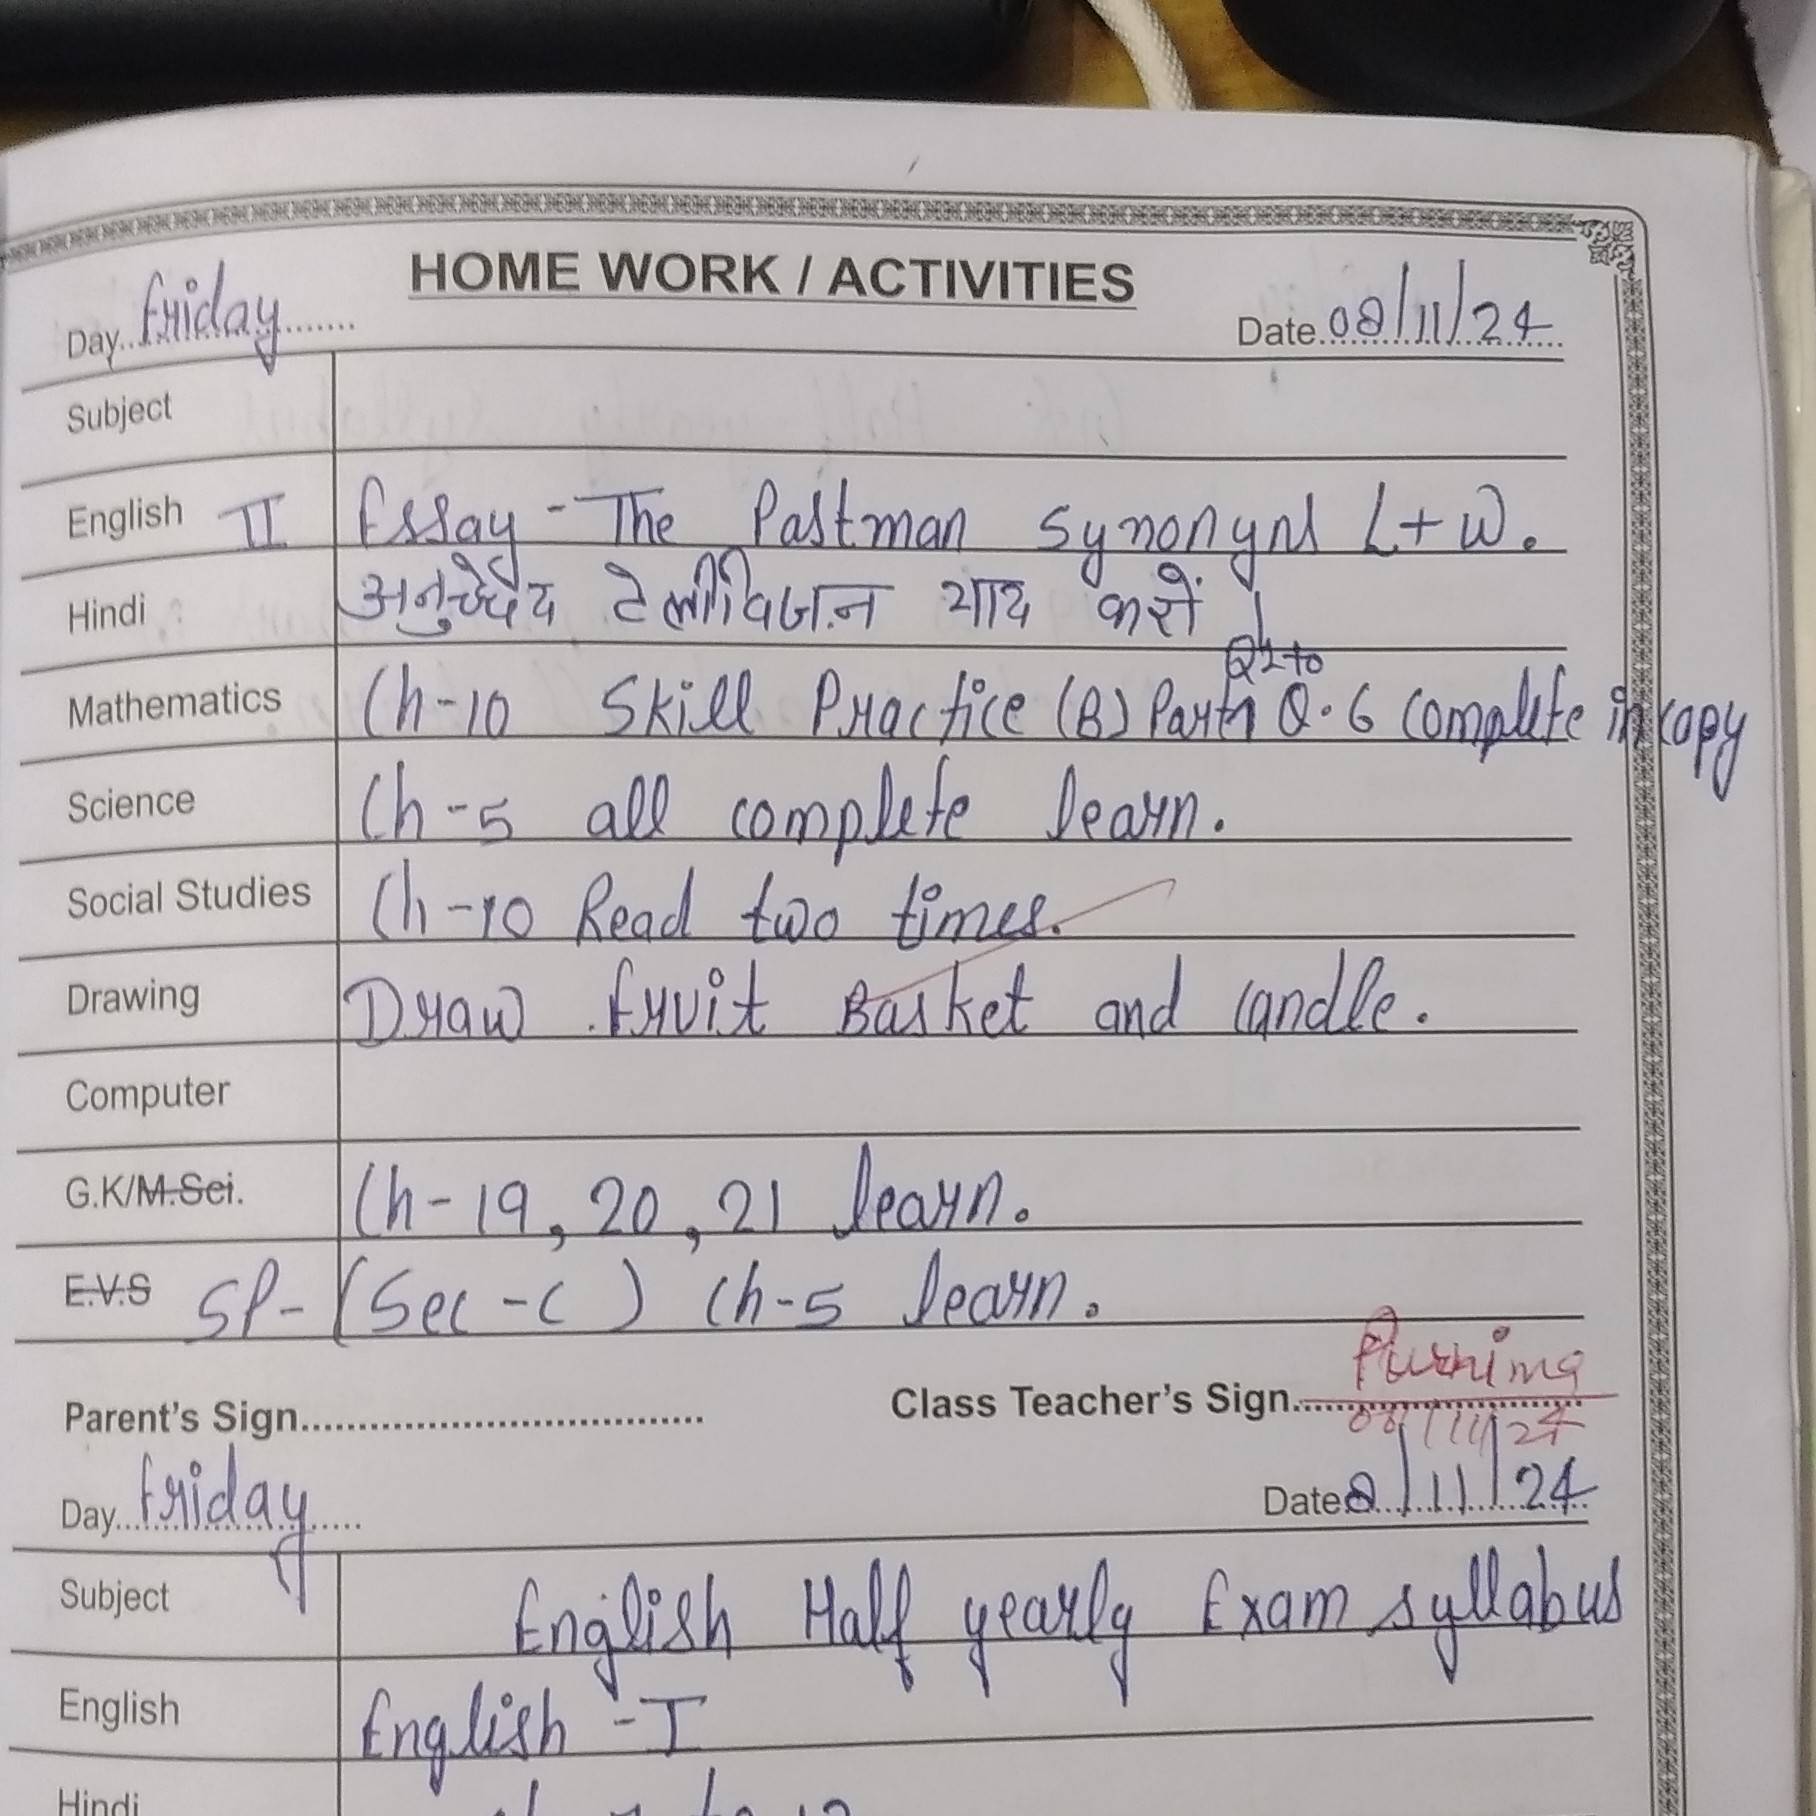 HOME WORK / ACTIVITIES
Day..Friday....... Date.08/11/24
Subject
English II Essay - The Pastman Synonyms L+W.
Hindi अनुच्छेद टेलीविजन याद करो।
Q1 to
Mathematics Ch-10 Skill Practice (B) Part Q.6 complete in copy
Science Ch-5 all complete learn.
Social Studies Ch-10 Read two times.
Drawing Draw fruit Basket and candle.
Computer
G.K/M.Sci. Ch-19, 20, 21 learn.
E.V.S SP- (Sec-C) Ch-5 learn.
Parent's Sign.................................. Class Teacher's Sign.. Purnima
08/11/24
Day..Friday..... Date 8/11/24
Subject English Half yearly Exam syllabus
English English - I
Hindi